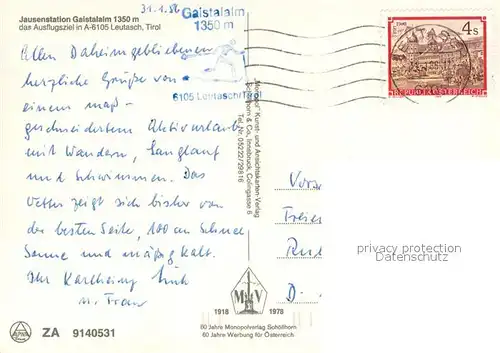 Jausenstation Gaistalalm 1350 m
das Ausflugsziel in A-6105 Leutasch, Tirol
31.1.86
Gaistalalm
1350 m
6105 Leutasch/Tirol
Allen Daheimgebliebenen
herzliche Grüße von
einem maß-
geschneiderten Aktivurlaub
mit Wandern, Langlauf
und Schwimmen. Das
Wetter zeigt sich bisher von
der besten Seite, 100 cm Schnee
Sonne und mäßig kalt.
Ihr Karlheinz
u. Frau
"Monopol" Kunst- und Ansichtskarten-Verlag
Schöllhorn & Co., Innsbruck, Colingasse 6
Tel. Nr. 05222/29816
4 S
REPUBLIK ÖSTERREICH
privacy protection
datenschutz
D-
MV
1918 1978
60 Jahre Monopolverlag Schöllhorn
60 Jahre Werbung für Österreich
ALPINA
ZA 9140531